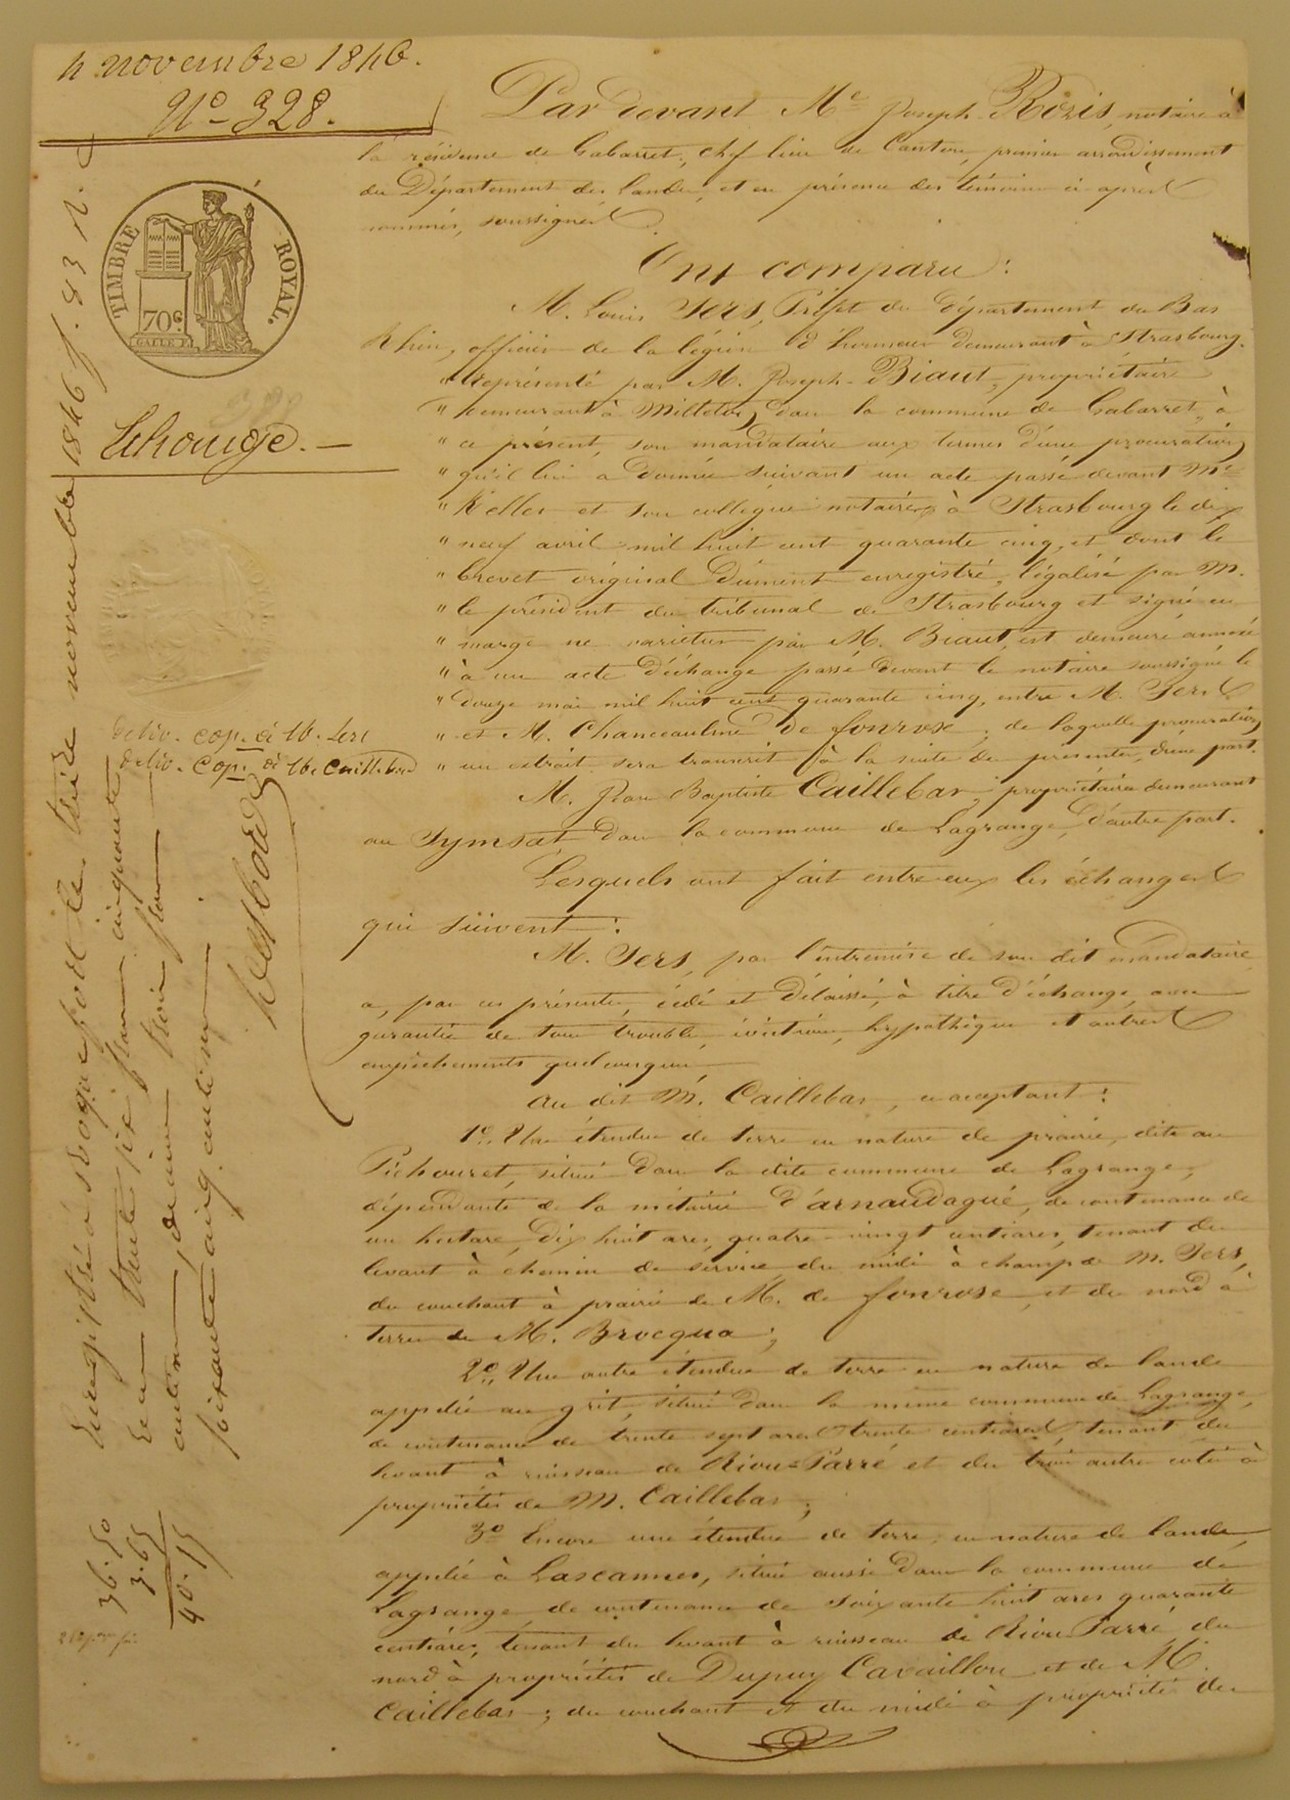 4 novembre 1846.
N° 328.
TIMBRE ROYAL.
70 c.
Echange. —
déliv. cop. à M. Sers
déliv. cop. à M. Caillebar
Par devant Me Joseph Rozis, notaire à
la résidence de Gabarret, chef lieu de Canton, premier arrondissement
du Département des landes, et en présence des témoins ci-après
nommés, soussignés
Ont comparu :
M. Louis Sers, Préfet du Département du Bas
Rhin, officier de la légion d'honneur demeurant à Strasbourg.
" Représenté par M. Joseph Biaut, propriétaire
" demeurant à dans la commune de Gabarret, à
" ce présent, son mandataire aux termes d'une procuration
" qu'il lui a donnée suivant un acte passé devant Me
" Keller et son collègue notaires à Strasbourg le dix
" neuf avril mil huit cent quarante cinq, et dont le
" brevet original dûment enregistré, légalisé par M.
" le président du tribunal de Strasbourg et signé en
" marge ne varietur par M. Biaut, est demeuré annexé
" à un acte d'échange passé devant le notaire soussigné le
" douze mai mil huit cent quarante cinq, entre M. Sers
" et M. Chanceaulme de fonrose, de laquelle procuration
" un extrait sera transcrit à la suite des présentes, d'une part.
M. Jean Baptiste Caillebar, propriétaire demeurant
au Symsat, dans la commune de Lagrange, d'autre part.
Lesquels ont fait entre eux les échanges
qui suivent :
M. Sers, par l'entremise de son dit mandataire
a, par ces présentes, cédé et délaissé, à titre d'échange, avec
garantie de tous troubles, évictions, hypothèques et autres
empêchements quelconques,
Au dit M. Caillebar, ce acceptant :
1° Une étendue de terre en nature de prairie, dite au
Pichouret, située dans la dite commune de Lagrange,
dépendante de la métairie d'arnaudagué, de contenance de
un hectare, dix huit ares, quatre-vingt centiares, tenant du
levant à chemin de service, du midi à champ de M. Sers,
du couchant à prairie de M. de fonrose, et du nord à
terre de M. Brocqua ;
2° Une autre étendue de terre en nature de lande
appelée au grit, située dans la même commune de Lagrange,
de contenance de trente sept ares trente centiares, tenant du
levant à ruisseau de Riou-Parré et des trois autres cotés à
propriétés de M. Caillebar ;
3° Encore une étendue de terre, en nature de lande,
appelée à Lascannes, située aussi dans la commune de
Lagrange, de contenance de soixante huit ares quarante
centiares, tenant du levant à ruisseau de Riou Parré, du
nord à propriétés de Dupuy Cavaillon et de M.
Caillebar ; du couchant et du midi à propriétés de
Enregistré à Roquefort le treize novembre 1846 f. 83
trente six francs cinquante
centimes, décime trois francs
soixante cinq centimes.
36.50
3.65
40.15